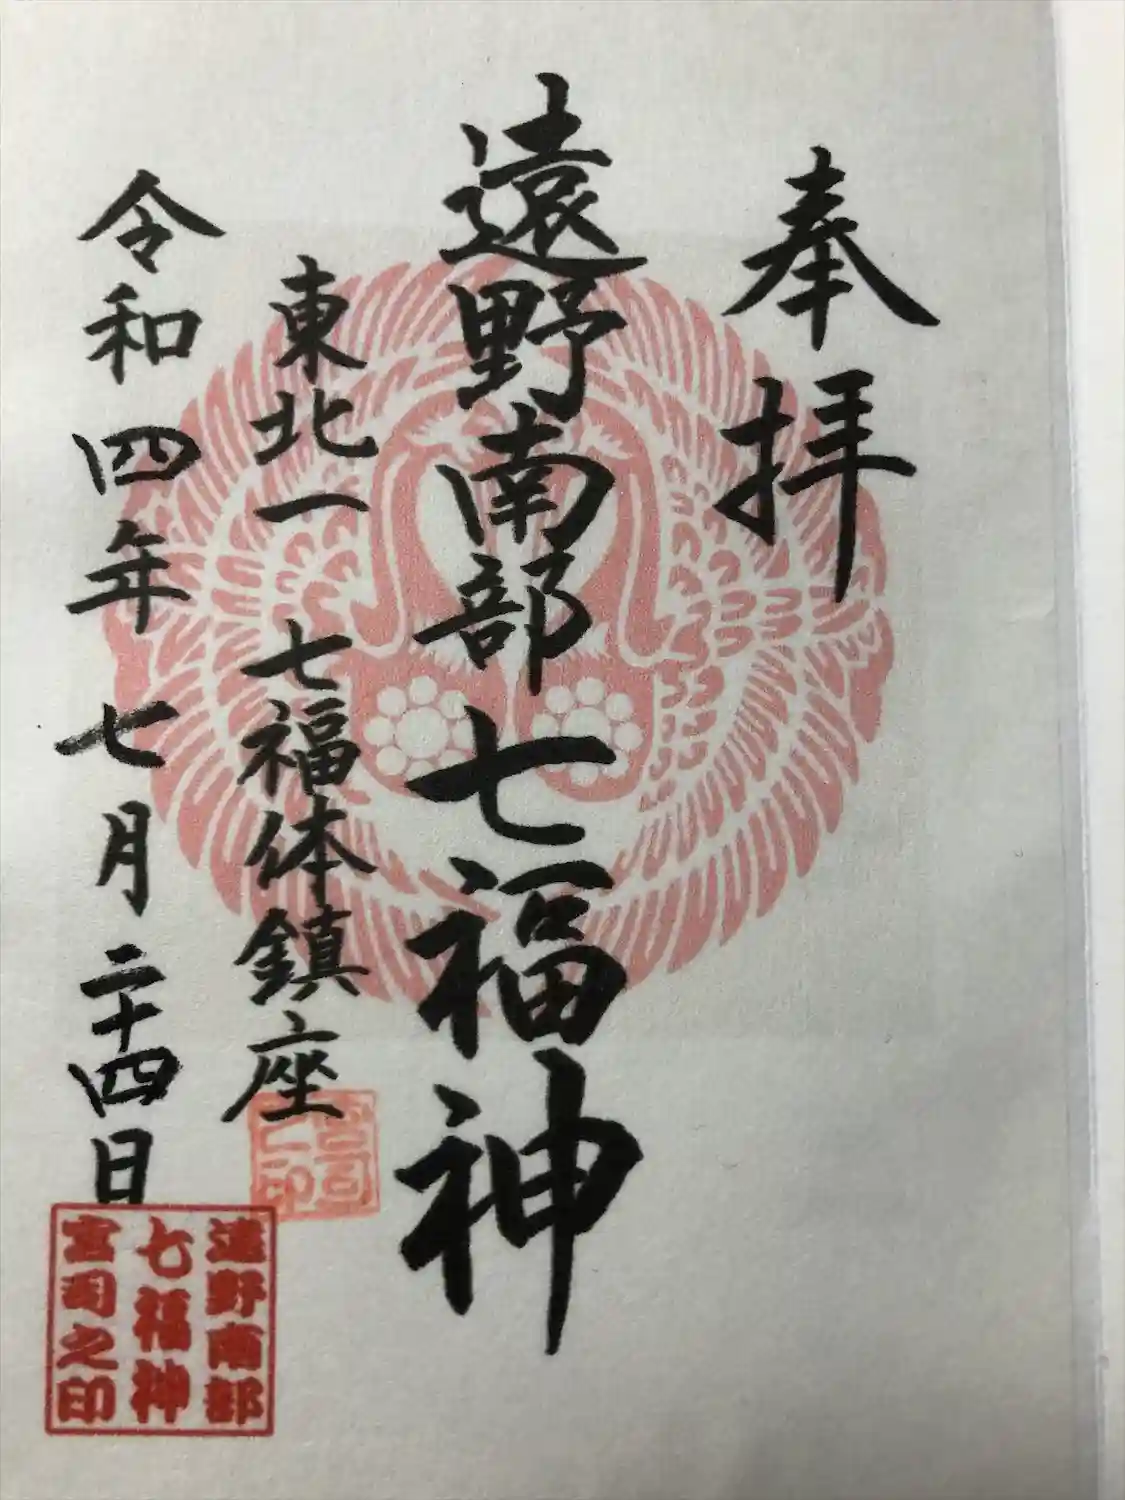 奉拝
遠野南部七福神
東北一 七福体鎮座
令和四年七月二十四日
宮司
之印
遠野南部
七福神
宮司之印